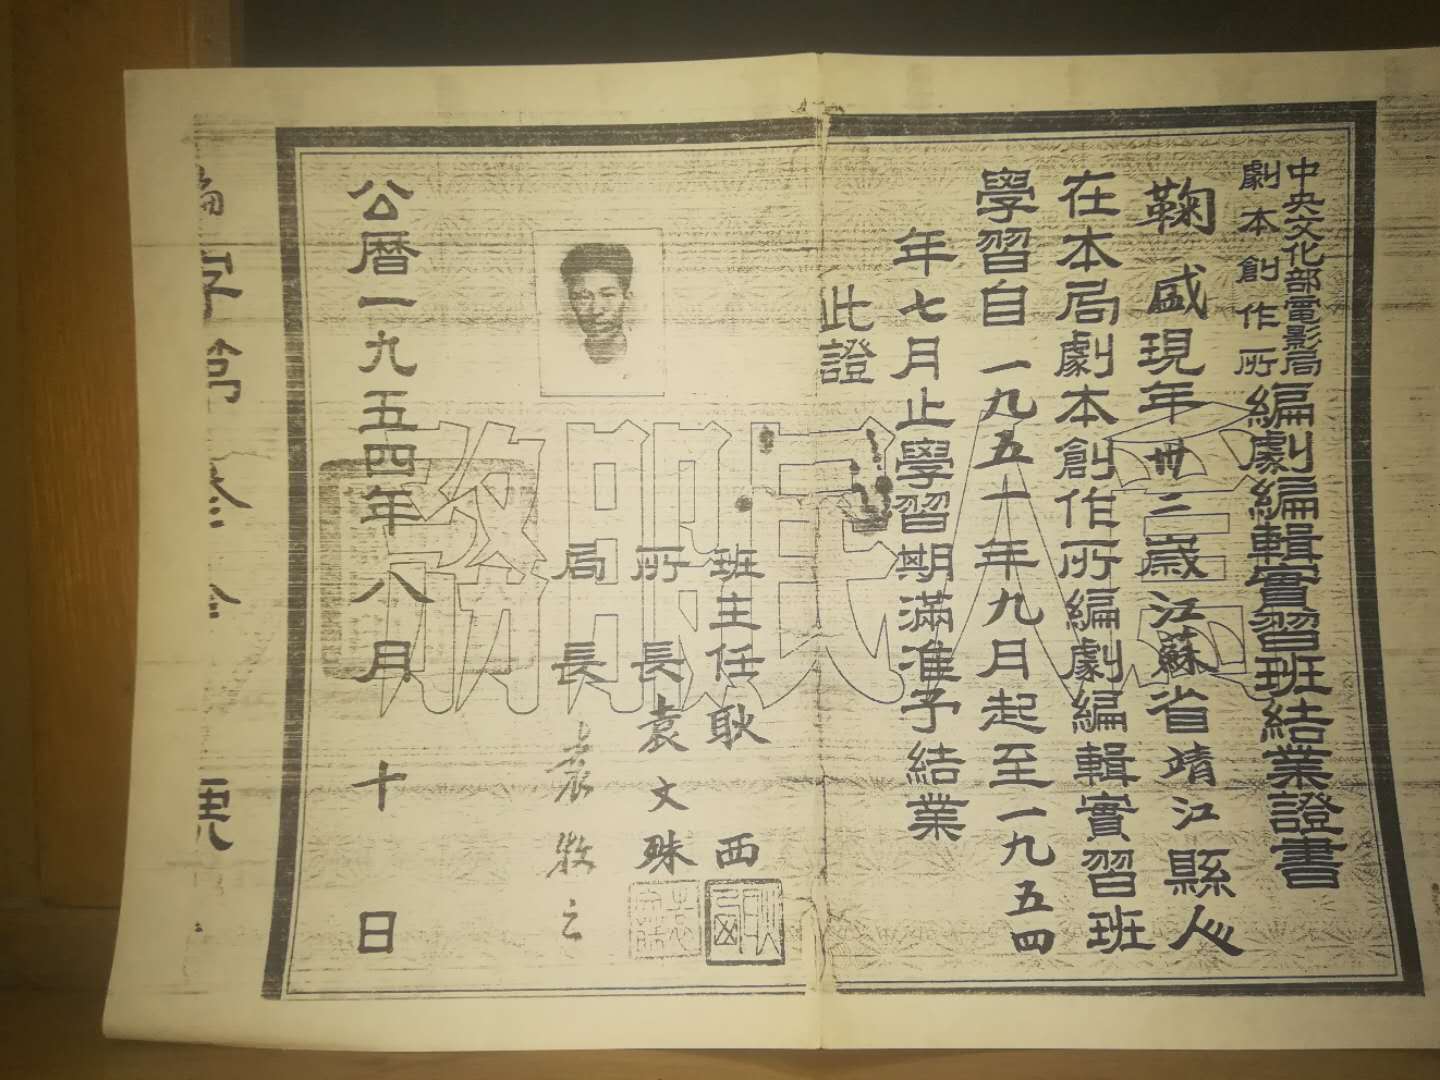 中央文化部電影局
劇本創作所
編劇編輯實習班結業證書
鞠盛現年卅二歲江蘇省靖江縣人
在本局劇本創作所編劇編輯實習班
學習自一九五一年九月起至一九五四
年七月止學習期滿准予結業
此證
班主任耿西
所長袁文殊
局長袁牧之
公曆一九五四年八月十日
為人民服務
耿西
字第叁拾號